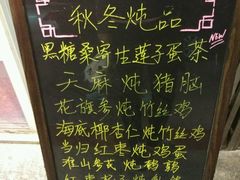 秋冬炖品
黑糖桑寄生莲子蛋茶
NEW
天麻炖猪脑
花旗参炖竹丝鸡
海底椰杏仁炖竹丝鸡
当归红枣炖鸡蛋
淮山杞炖鹌鹑